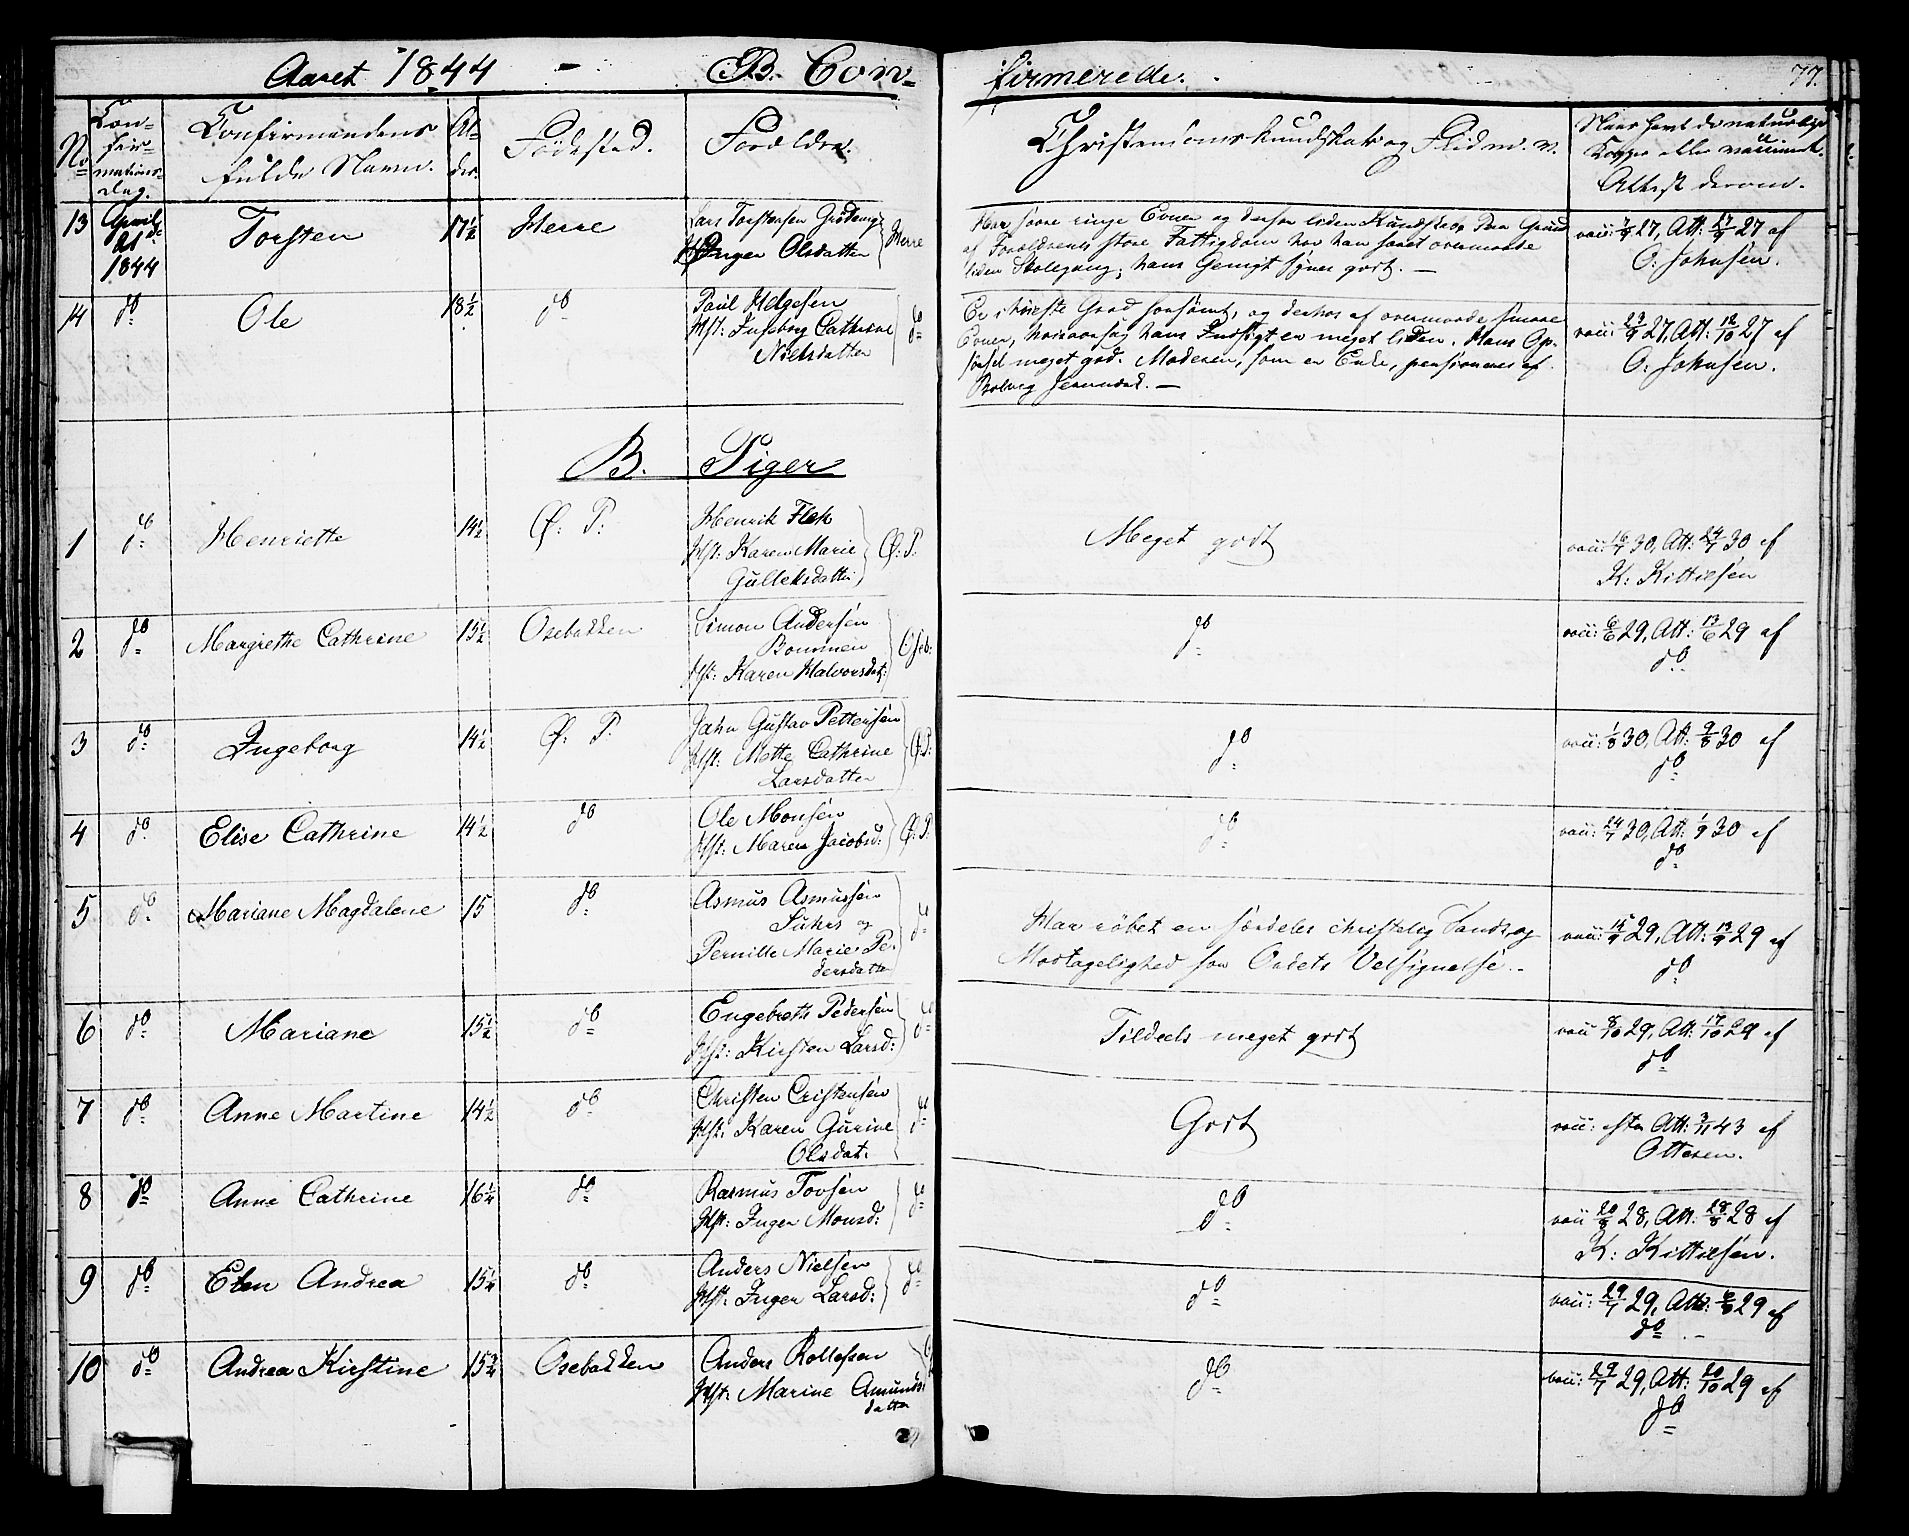 Aaret 1844 - B. Con-
firmerede. 77.
No
Con-
fir-
mations-
dag.
Confirmandens
fulde Navn.
Al-
der.
Fødested.
Forældre.
Christendomskundskab og Flid m. v.
Naar havt de naturlige
Kopper eller vaccineret.
Attest derom.
13 April 21de 1844 Torsten 17½ Herre
Lars Torstensen Grøtting
Hst: Inger Olsdatter } Herre
Har svare ringe Evner og derfor liden Kundskab. Paa Grund
af Forældrenes store Fattigdom har han havt overmaade
liden Skolegang; hans Gemyt synes godt. —
vacc: 27, Att: 27 af
O: Johnsen.
14 do Ole 18½ do
Paul Helgesen
Hst: Ingeborg Cathrine
Nielsdatter } do
Er i høieste Grad forsømt, og derhos af overmaade svage
Evner, hvisaarsag hans Indsigt er meget liden. Hans Op-
førsel meget god. Moderen, som er Enke, pensioneres af
Bolvig Jernværk. —
vacc: 23/9 27, Att: 12/10 27 af
O: Johnsen.
B. Piger
1 do Henriette 14½ Ø: P:
Henrik Flek
Hst: Karen Marie
Gulleksdatter } Ø: P:
Meget godt
vacc: 16/7 30, Att: 24/7 30 af
K: Kittilsen
2 do Margrethe Cathrine 15½ Osebakken
Simon Andersen
Bommen
Hst: Karen Halvorsdat: } Oseb:
do
vacc: 6/6 29, Att: 13/6 29 af
do
3 do Ingeborg 14½ Ø: P.
Jahn Gustav Pettersen
Hst: Mette Cathrine
Larsdatter } Ø: P:
do
vacc: 1/8 30, Att: 9/8 30 af
do
4 do Elise Cathrine 14½ do
Ole Monsen
Hst: Maren Jacobsd: } Ø: P.
do
vacc: 24/7 30, Att: 1/9 30 af
do
5 do Mariane Magdalene 15 do
Asmus Asmussen
Suhrs og
Pernille Marie Pe-
dersdatter } do
Har røbet en særdeles christelig Sands og
Modtagelighed for Ordets Velsignelse. -
vacc: 29, Att: 13/9 29 af
do
6 do Mariane 15½ do
Engebreth Pedersen
Hst: Kirsten Larsd: } do
Tildeels meget godt
vacc 8/10 29, Att: 17/10 29 af
do
7 do Anne Martine 14½ do
Christen Cristensen
Hst: Karen Gurine
Olsdat: } do
Godt
vacc: efter Att: 3/11 43 af
Ottesen.
8 do Anne Cathrine 16¼ do
Rasmus Tovsen
Hst: Inger Monsd: } do
do
vacc 20/8 28, Att: 28/8 28 af
K: Kittilsen.
9 do Elen Andrea 15¼ do
Anders Nielsen
Hst: Inger Larsd: } do
do
vacc: 29/7 29, Att: 29 af
do
10 do Andrea Kirstine 15¾ Osebakken
Anders Rollefsen
Hst: Marine Amunds-
datter
do
vacc: 29/7 29, Att: 20/10 29 af
do